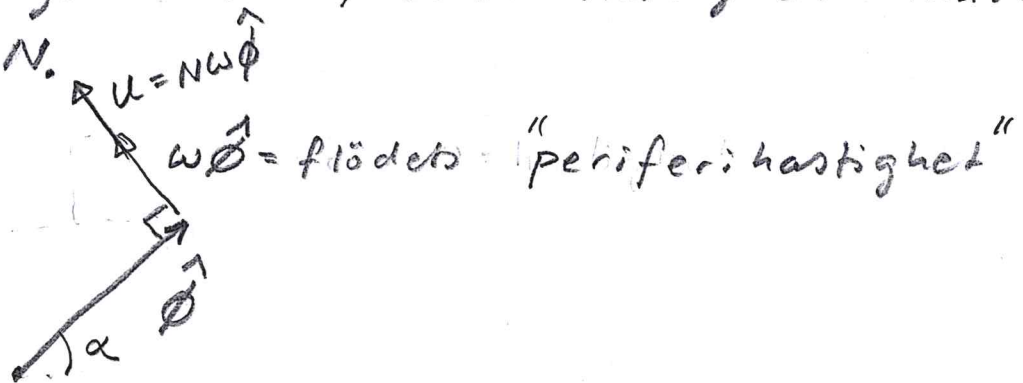 N.
U = Nωφ̂
ωφ̂ = flödets "periferihastighet"
φ̂
α